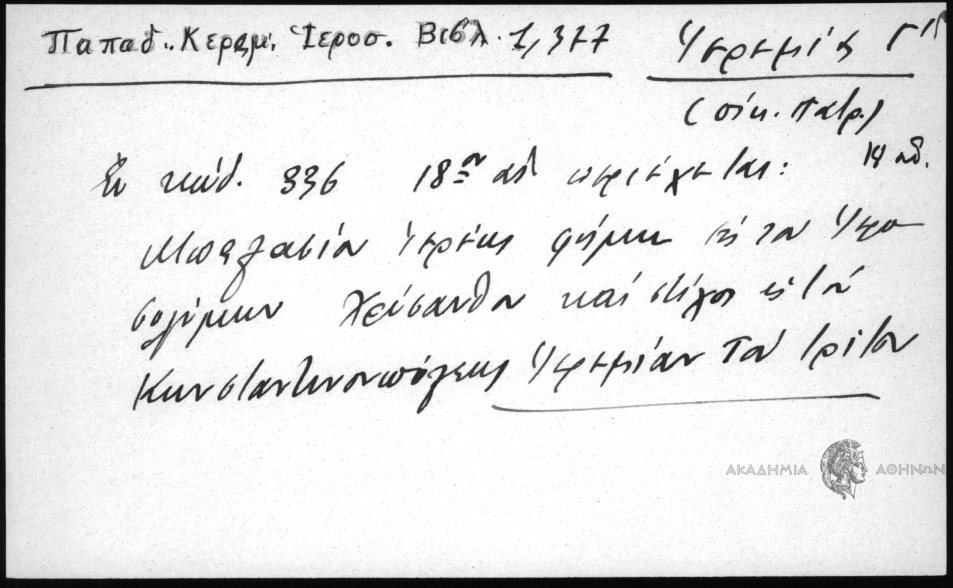 Παπαδ.. Κεραμ. Ἱεροσ. Βιβλ. 1,377 Ἱερεμίας Γ΄
(οἰκ. πατρ.)
Ἐν κώδ. 336 18ου αἰ περιέχεται:
Ἱερέως φήμη εἰς τὸν Ἱερο
σολύμων Χρύσανθον καὶ στίχοι εἰς τὸν
Κωνσταντινουπόλεως Ἱερεμίαν τὸν τρίτον
ΑΚΑΔΗΜΙΑ ΑΘΗΝΩΝ